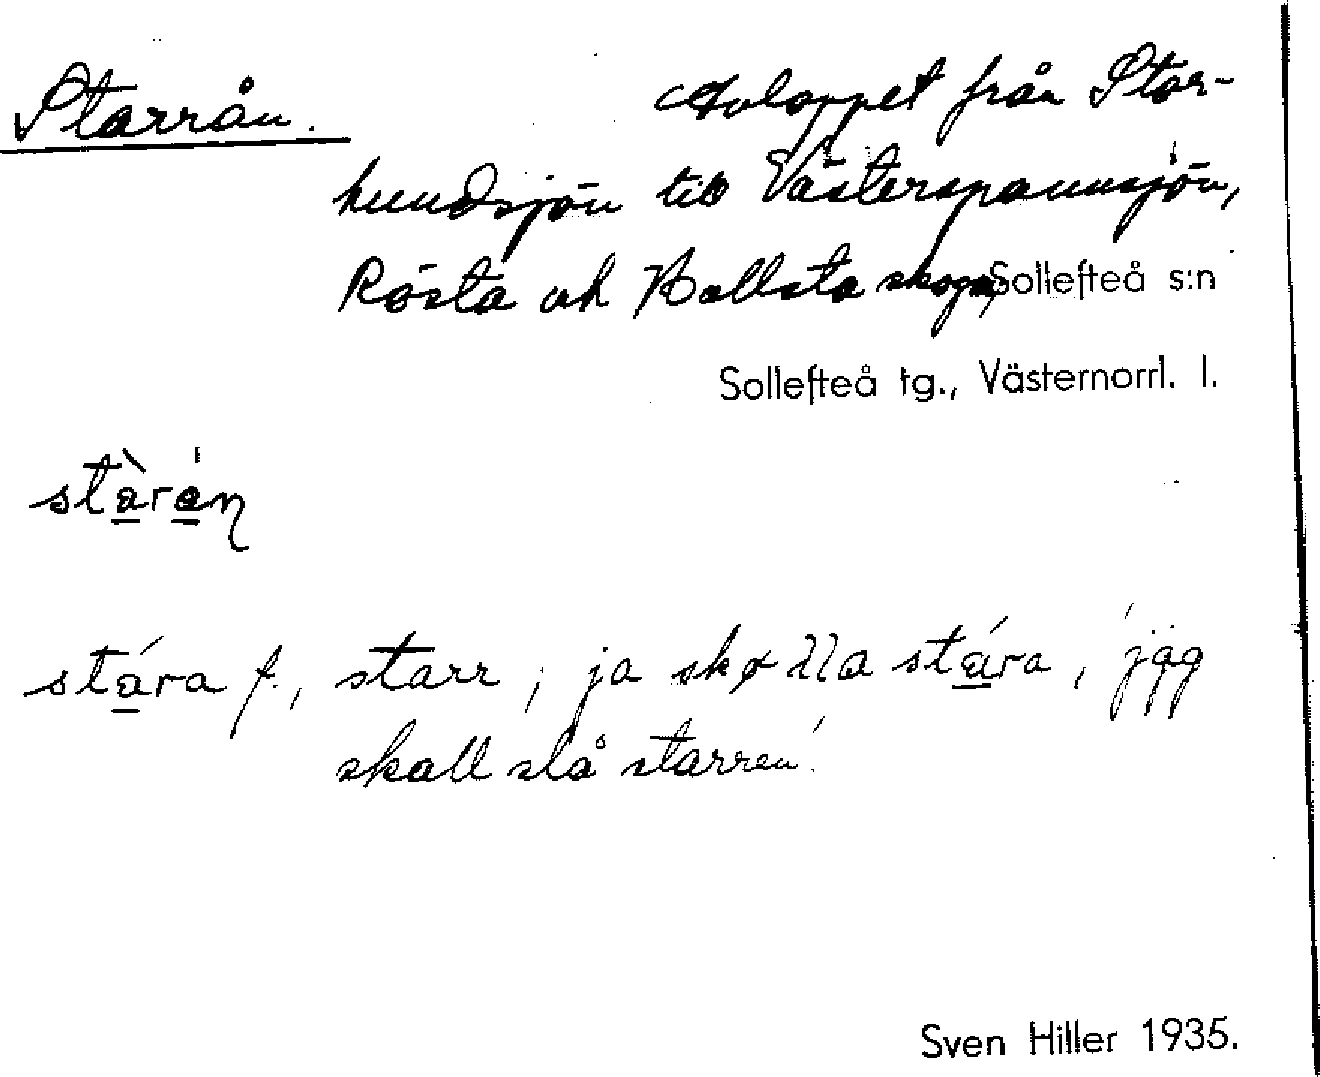 Starrån. Avloppet från Stor-
hundsjön till Västerspannsjön,
Rösta och Hallsta skogar, Sollefteå s:n
Sollefteå tg., Västernorrl. l.
stàrán
stára f., starr; ja stára, 'jag
skall slå starren'.
Sven Hiller 1935.